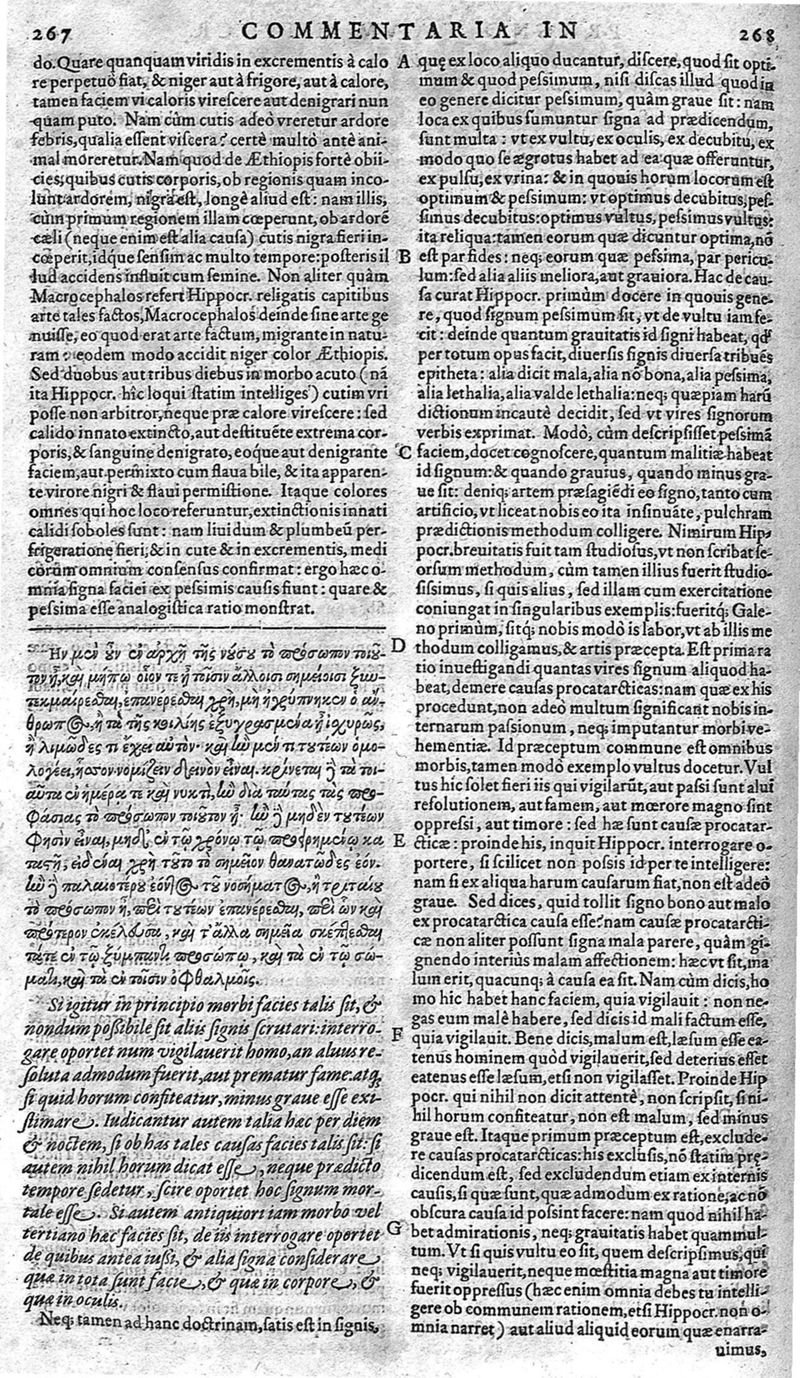 267 COMMENTARIA IN 268
do. Quare quanquam viridis in excrementis à calo
re perpetuò fiat, & niger aut à frigore, aut à calore,
tamen faciem vi caloris virescere aut denigrari nun
quam puto. Nam cùm cutis adeò vreretur ardore
febris, qualia essent viscera? certè multò antè ani-
mal moreretur. Nam quod de Æthiopis fortè obii-
cies, quibus cutis corporis, ob regionis quam inco-
lunt ardorem, nigra est, longè aliud est: nam illis,
cùm primum regionem illam cœperunt, ob ardorẽ
cæli (neque enim est alia causa) cutis nigra fieri in-
cœperit, idque sensim ac multo tempore: posteris il
lud accidens influit cum semine. Non aliter quàm
Macrocephalos refert Hippocr. religatis capitibus
arte tales factos, Macrocephalos deinde sine arte ge
nuisse, eo quod erat arte factum, migrante in natu-
ram: eodem modo accidit niger color Æthiopis.
Sed duobus aut tribus diebus in morbo acuto (nã
ita Hippocr. hîc loqui statim intelliges) cutim vri
posse non arbitror, neque præ calore virescere: sed
calido innato extincto, aut destituẽte extrema cor-
poris, & sanguine denigrato, eoque aut denigrante
faciem, aut permixto cum flaua bile, & ita apparen-
te virore nigri & flaui permistione. Itaque colores
omnes qui hoc loco referuntur, extinctionis innati
calidi soboles sunt: nam liuidum & plumbeũ per-
frigeratione fieri, & in cute & in excrementis, medi
corum omnium consensus confirmat: ergo hæc o-
mnia signa faciei ex pessimis causis fiunt: quare &
pessima esse analogistica ratio monstrat.
Ἢν μὲν οὖν ἐν ἀρχῇ τῆς νούσου τὸ πρόσωπον τοιοῦ-
τον ᾖ, καὶ μήπω οἷόν τε ᾖ τοῖσιν ἄλλοισι σημείοισι ξυν-
τεκμαίρεσθαι, ἐπανερέσθαι χρὴ, μὴ ἠγρύπνηκεν ὁ ἄν-
θρωπος, ἢ τὰ τῆς κοιλίης ἐξυγρασμένα ᾖ ἰσχυρῶς,
ἢ λιμῶδές τι ἔχει αὐτόν· καὶ ἢν μέν τι τουτέων ὁμο-
λογέει, ἧσσον νομίζειν δεινὸν εἶναι. κρίνεται ἢ τὰ τοι-
αῦτα ἐν ἡμέρᾳ τε καὶ νυκτὶ, ἢν διὰ ταύτας τὰς προ-
φάσιας τὸ πρόσωπον τοιοῦτον ᾖ· ἢν ἢ μηδὲν τουτέων
φησὶν εἶναι, μηδ' ἐν τῷ χρόνῳ τῷ προειρημένῳ κα
ταστῇ, εἰδέναι χρὴ τοῦτο τὸ σημεῖον θανατῶδες ἐόν.
ἢν ἢ παλαιοτέρου ἐόντος τοῦ νοσήματος, ἢ τριταίου
τὸ πρόσωπον ᾖ, περὶ τουτέων ἐπανέρεσθαι, περὶ ὧν καὶ
πρότερον ἐκέλευσα, καὶ τ' ἄλλα σημεῖα σκέπτεσθαι
τά τε ἐν τῷ ξύμπαντι προσώπῳ, καὶ τὰ ἐν τῷ σώ-
ματι, καὶ τὰ ἐν τοῖσιν ὀφθαλμοῖς.
Si igitur in principio morbi facies talis sit, &
nondum possibile sit aliis signis scrutari: interro-
gare oportet num vigilauerit homo, an aluus re-
soluta admodum fuerit, aut prematur fame: atq;
si quid horum confiteatur, minus graue esse exi-
stimare. Iudicantur autem talia hæc per diem
& noctem, si ob has tales causas facies talis sit: si
autem nihil horum dicat esse, neque prædicto
tempore sedetur, scire oportet hoc signum mor-
tale esse. Si autem antiquiori iam morbo vel
tertiano hæc facies sit, de iis interrogare oportet
de quibus antea iussi, & alia signa considerare,
quæ in tota sunt facie, & quæ in corpore, &
quæ in oculis.
Neq; tamen ad hanc doctrinam, satis est in signis,
A quę ex loco aliquo ducantur, discere, quod sit opti-
mum & quod pessimum, nisi discas illud quod in
eo genere dicitur pessimum, quàm graue sit: nam
loca ex quibus sumuntur signa ad prædicendum,
sunt multa: vt ex vultu, ex oculis, ex decubitu, ex
modo quo se ægrotus habet ad ea quæ offeruntur,
ex pulsu, ex vrina: & in quouis horum locorum est
optimum & pessimum: vt optimus decubitus, pes-
simus decubitus: optimus vultus, pessimus vultus:
ita reliqua: tamen eorum quæ dicuntur optima, nõ
B est par fides: neq; eorum quæ pessima, par pericu-
lum: sed alia aliis meliora, aut grauiora. Hac de cau-
sa curat Hippocr. primùm docere in quouis gene-
re, quod signum pessimum sit, vt de vultu iam fe-
cit: deinde quantum grauitatis id signi habeat, qđ
per totum opus facit, diuersis signis diuersa tribuẽs
epitheta: alia dicit mala, alia nõ bona, alia pessima,
alia lethalia, alia valde lethalia: neq; quæpiam harũ
dictionum incautè decidit, sed vt vires signorum
verbis exprimat. Modò, cùm descripsisset pessimã
C faciem, docet cognoscere, quantum malitiæ habeat
id signum: & quando grauius, quando minus gra-
ue sit: deniq; artem præsagiẽdi eo signo, tanto cum
artificio, vt liceat nobis eo ita insinuãte, pulchram
prædictionis methodum colligere. Nimirum Hip-
pocr. breuitatis fuit tam studiosus, vt non scribat se-
orsum methodum, cùm tamen illius fuerit studio-
sissimus, si quis alius, sed illam cum exercitatione
coniungat in singularibus exemplis: fueritq; Gale-
no primùm, sitq; nobis modò is labor, vt ab illis me
D thodum colligamus, & artis præcepta. Est prima ra
tio inuestigandi quantas vires signum aliquod ha-
beat, demere causas procatarcticas: nam quæ ex his
procedunt, non adeò multum significant nobis in-
ternarum passionum, neq; imputantur morbi ve-
hementiæ. Id præceptum commune est omnibus
morbis, tamen modò exemplo vultus docetur. Vul
tus hic solet fieri iis qui vigilarũt, aut passi sunt alui
resolutionem, aut famem, aut mœrore magno sint
oppressi, aut timore: sed hæ sunt causæ procatar-
E cticæ: proinde his, inquit Hippocr. interrogare o-
portere, si scilicet non possis id per te intelligere:
nam si ex aliqua harum causarum fiat, non est adeò
graue. Sed dices, quid tollit signo bono aut malo
ex procatarctica causa esse? nam causæ procatarcti-
cæ non aliter possunt signa mala parere, quàm gi-
gnendo interius malam affectionem: hæc vt sit, ma
lum erit, quacunq; à causa ea sit. Nam cùm dicis, ho
mo hic habet hanc faciem, quia vigilauit: non ne-
gas eum malè habere, sed dicis id mali factum esse,
F quia vigilauit. Bene dicis, malum est, læsum esse ea-
tenus hominem quòd vigilauerit, sed deterius esset
eatenus esse læsum, etsi non vigilasset. Proinde Hip
pocr. qui nihil non dicit attentè, non scripsit, si ni-
hil horum confiteatur, non est malum, sed minus
graue est. Itaque primum præceptum est, exclude-
re causas procatarcticas: his exclusis, nõ statim prę-
dicendum est, sed excludendum etiam ex internis
causis, si quæ sunt, quæ admodum ex ratione, ac nõ
obscura causa id possint facere: nam quod nihil ha-
G bet admirationis, neq; grauitatis habet quammul-
tum. Vt si quis vultu eo sit, quem descripsimus, qui
neq; vigilauerit, neque mœstitia magna aut timore
fuerit oppressus (hæc enim omnia debes tu intelli-
gere ob communem rationem, etsi Hippocr. non o-
mnia narret) aut aliud aliquid eorum quæ enarra-
uimus,